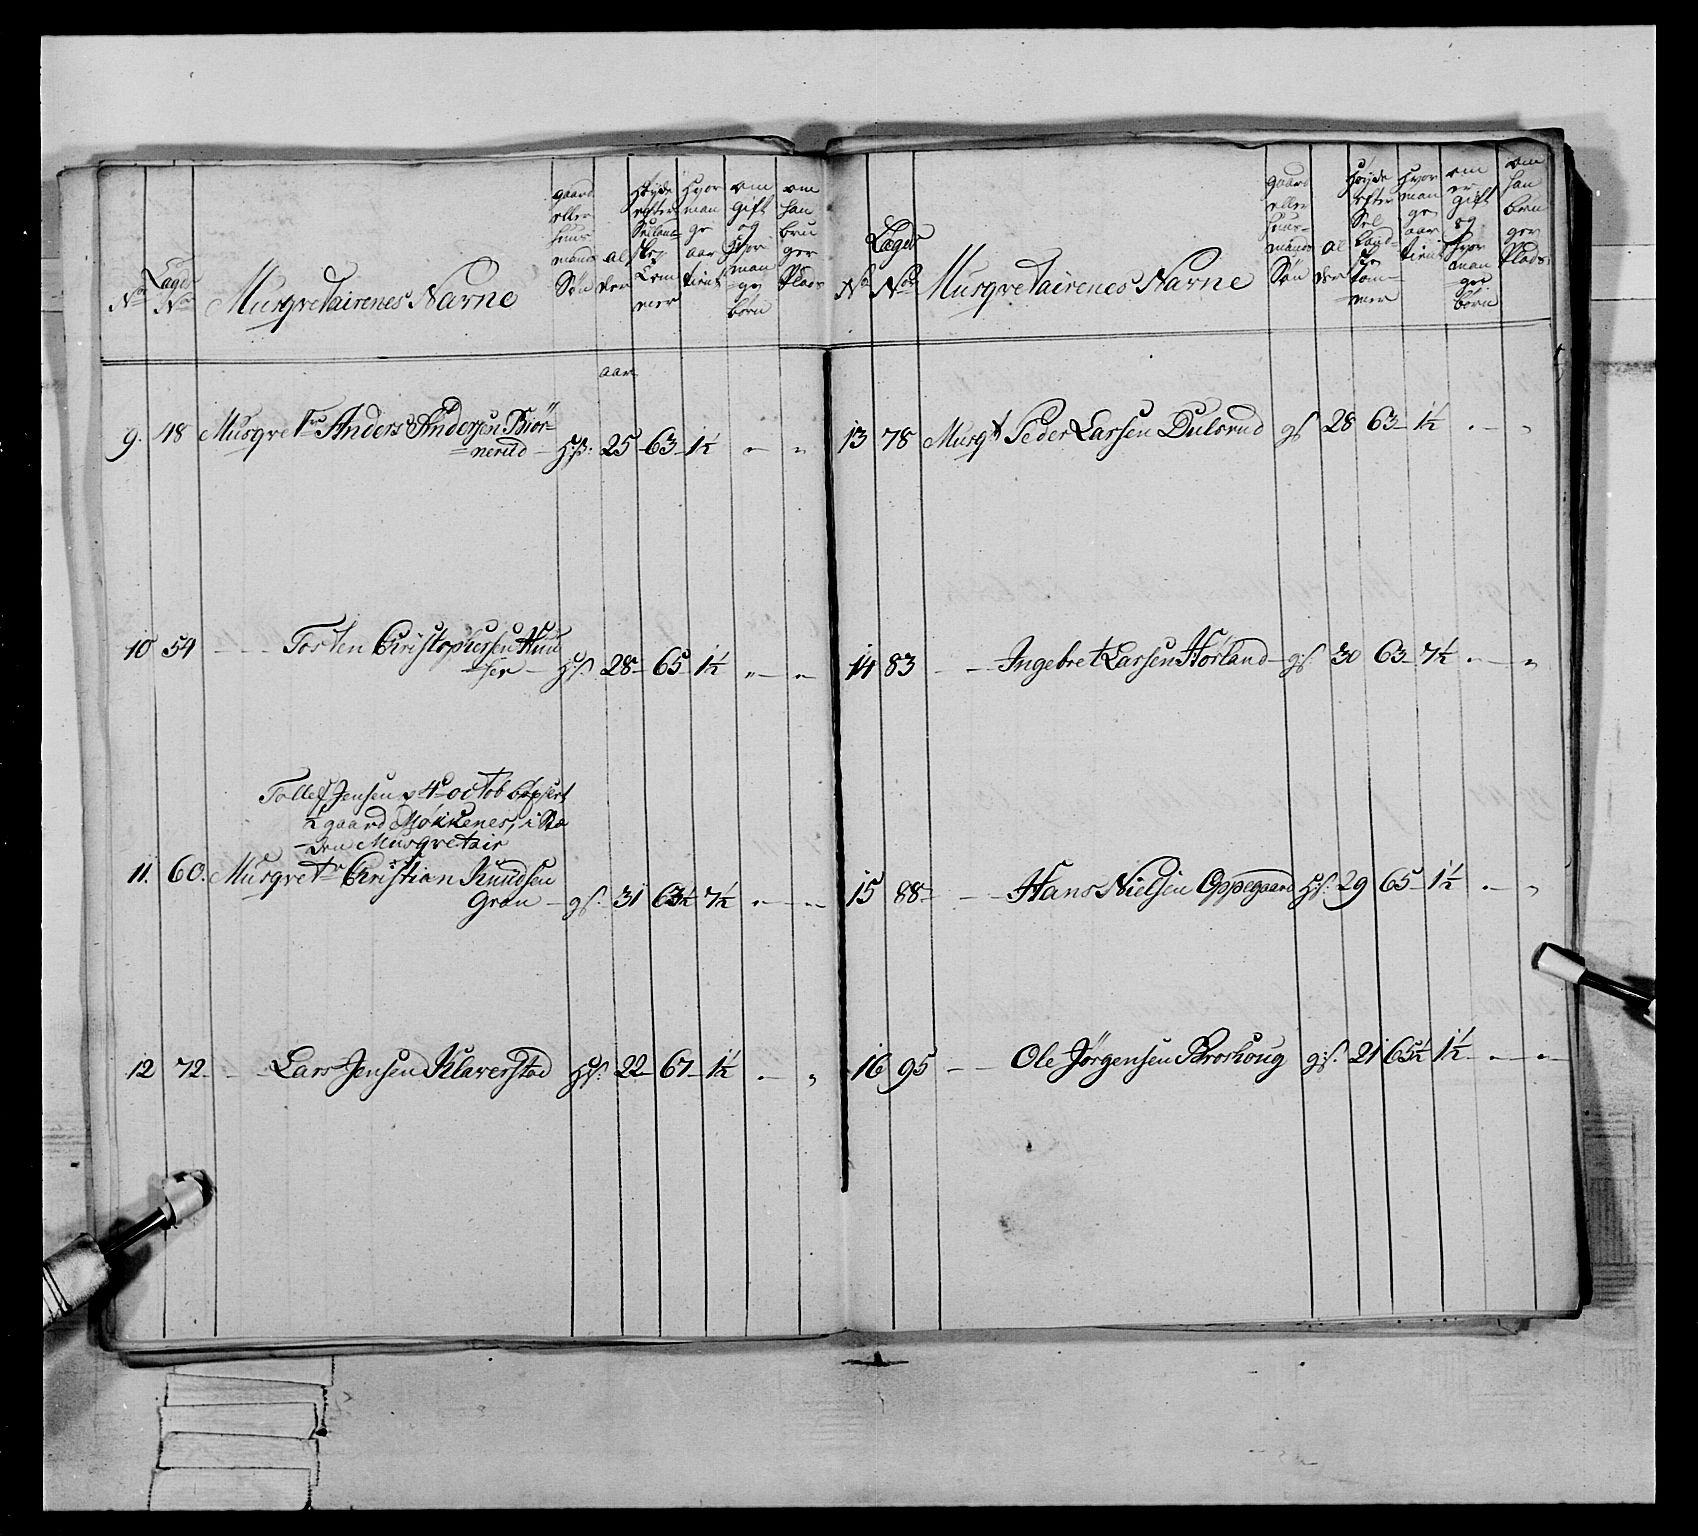 No
Lægds No
Musqvetairenes Navne
gaard eller huus mands Søn
al der
Høyde efter Seilandske Tommer
Hvor mange aar tient
om gift og hvor mange børn
om han bruger Plads
aar
9. 48 Musqvetr Anders Andersen Biör=
=nerud – Hs: 25 – 63 – 1½ " – "
10 54 – – Torsten Christophersen Huu
=ser – Hs: 28 – 65 – 1½ " – " –
Tollef Jensen
gaard Møkkenes, i Stæ
den Musqvetair
11. 60. Musqvetr Christian Knudsen
Gran – gs: 31 63½ – 7½ " – " –
12 72 – – Lars Jensen Klaverstad Hs: 22 – 67 – 1½ " – "
No
Lægds No
Musqvetairenes Navne
gaard eller huus= mands Søn
al der
Høyde efter Sel land= ske tom= mer
Hvor man ge aar tient
om er gift og hvor man= ge børn
om han bru ger Plads
13 78 Musqt Peder Larsen Dulsrud gs 28 63 – 1½ " – "
14 83 – – Ingebret Larsen Horland – gs: 30 63 – 7½ " – "
15 88 – – Hans Nielsen Oppegaard Hs: 29 65 – 1½ " – "
16 95 – – Ole Jörgensen Broshoug gs: 21 65½ 1½ – " – " –